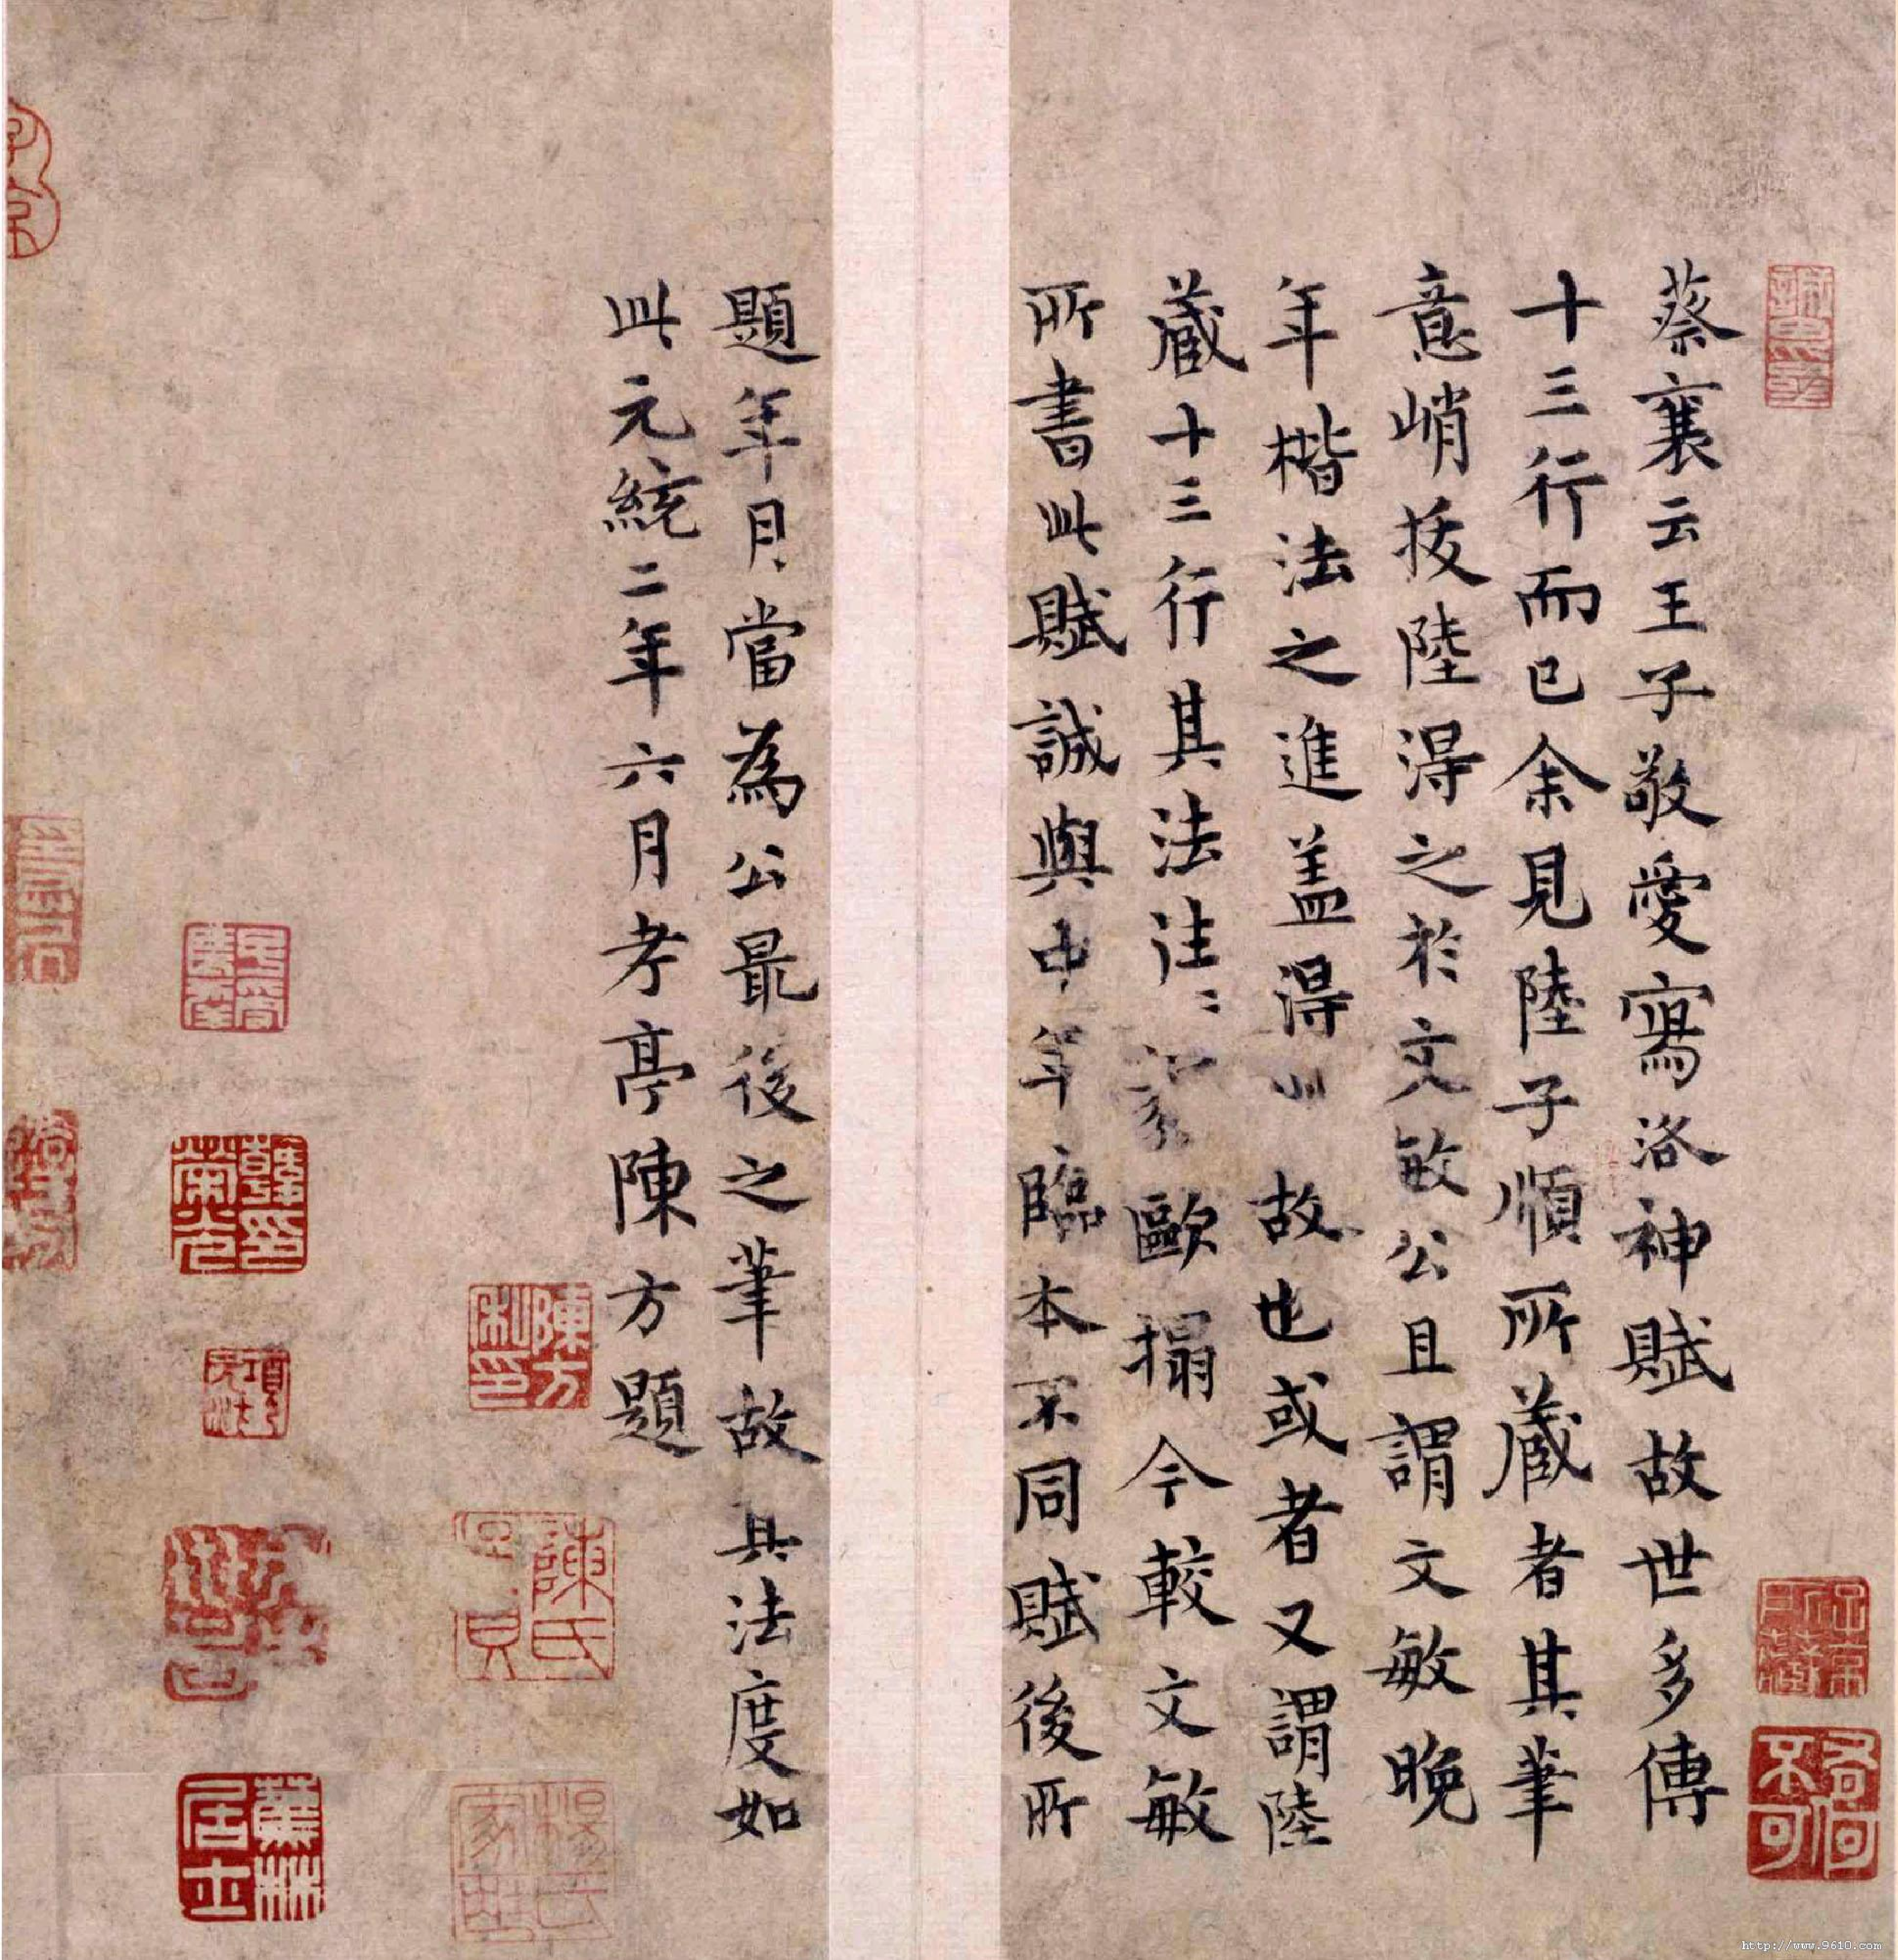 蔡襄云王子敬愛寫洛神賦故世多傳
十三行而已余見陸子順所藏者其筆
意峭拔陸得之於文敏公且謂文敏晚
年楷法之進盖得此故也或者又謂陸
藏十三行其法往〻歐搨今較文敏
所書此賦誠與中年臨本不同賦後所
題年月當為公最後之筆故其法度如
此元統二年六月孝亭陳方題
陳方私印
陳氏
韓印
蕉林居士
http://www.9610.com